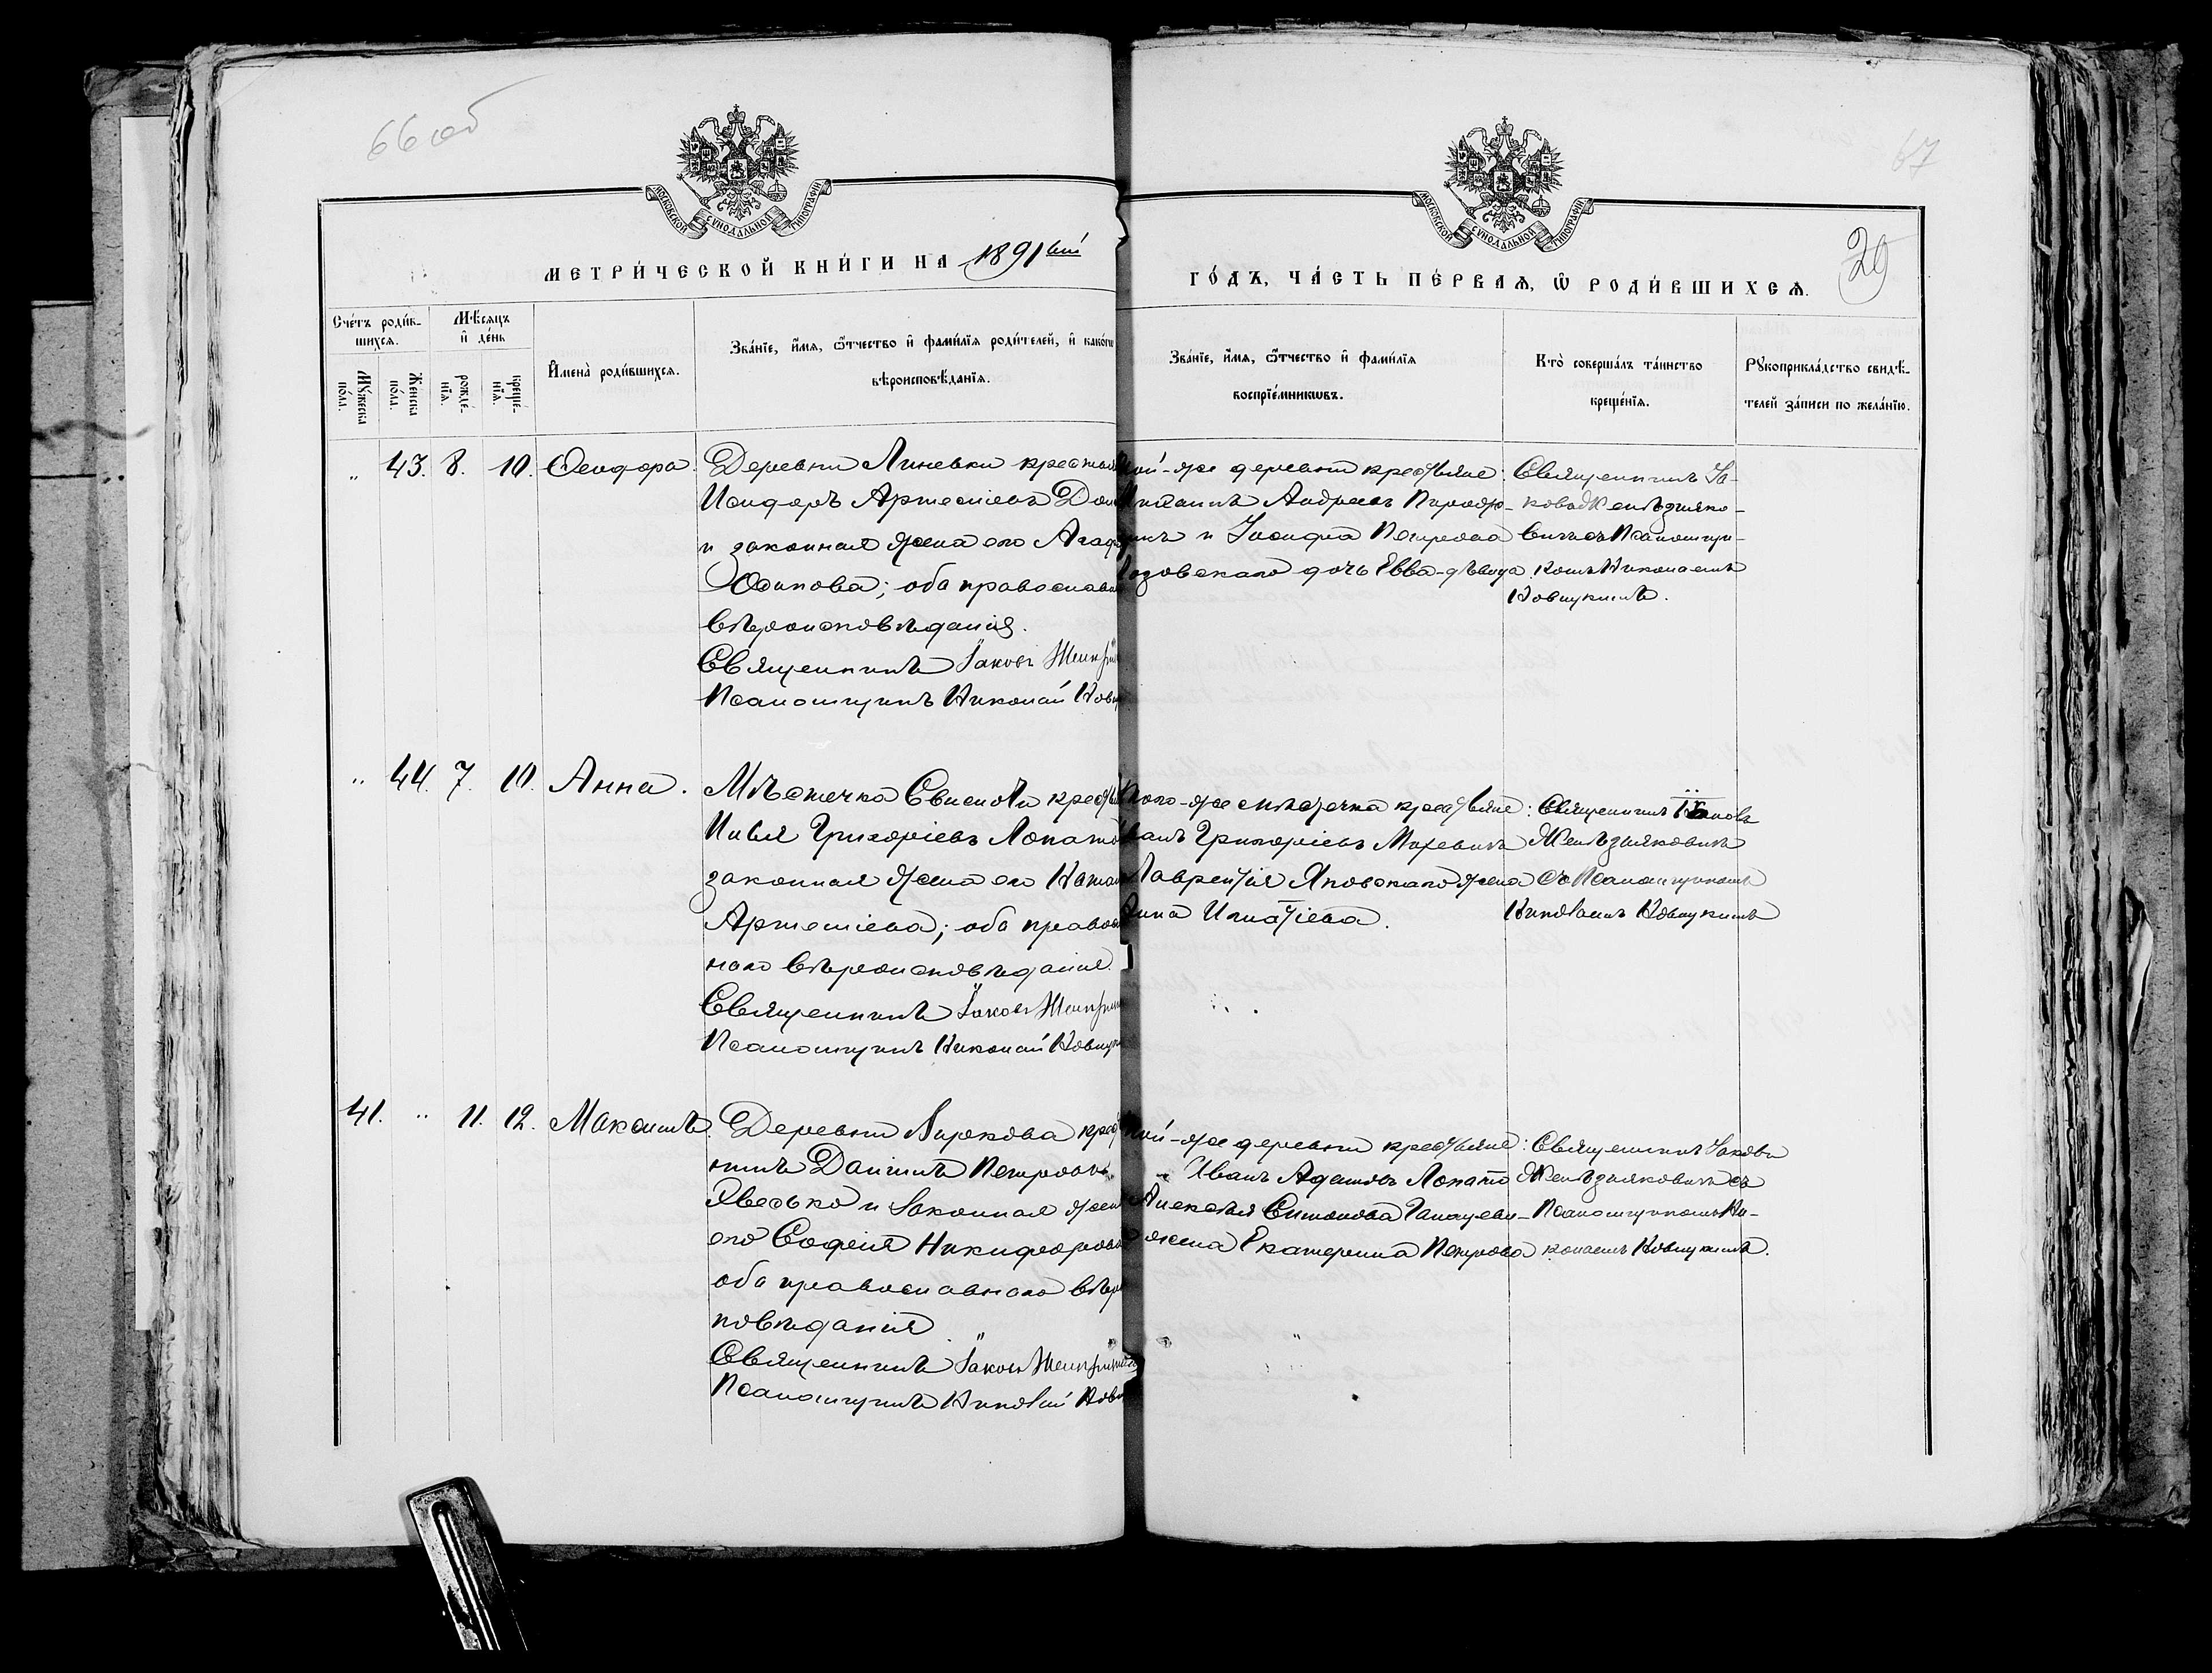 66 об
67
МОСКОВСКОЙ СѴНОДАЛЬНОЙ ТИПОГРАФІИ
МОСКОВСКОЙ СѴНОДАЛЬНОЙ ТИПОГРАФІИ
МЕТРИ́ЧЕСКОЙ КНИ́ГИ НА 1891 ый
ГО́ДЪ, ЧА́СТЬ ПЕ́РВАѦ, Ѡ҆ РОДИ́ВШИХСѦ.
20
Сче́тъ роди́в-
шихсѧ.
Мꙋ́жеска
по́ла.
Же́нска
по́ла.
Мѣ́сѧцъ
и҆ де́нь
рожде́-
нїѧ.
креще́-
нїѧ.
И҆мена̀ роди́вшихсѧ.
Зва́нїе, и҆́мѧ, ѻ҆́тчество и҆ фамѝлїѧ роди́телей, и҆ како́гѡ
вѣроисповѣ́данїѧ.
Зва́нїе, и҆́мѧ, ѻ҆́тчество и҆ фами́лїѧ
воспрїе́мникѡвъ.
Кто̀ соверша́лъ та́инство
креще́нїѧ.
Рꙋкоприкла́дство свидѣ́-
телей за́писи по жела́нїю.
„ 43. 8. 10. Ѳеодора.
Деревни Линевки крестья
Исидоръ Артемiевъ
и законная жена его Агаф
Осипова; оба православн
вѣроисповѣданiя.
Священникъ Iаковъ
Псаломщикъ Николай Новиц
той-же деревни крестьяне:
Андреевъ
и Iосифа Петрова
дочь Евва-дѣвица.
Священникъ Iа-
ковъ Желѣзняко-
вичъ съ Псаломщи-
комъ Николаемъ
„ 44. 7. 10. Анна.
Мѣстечка Свислочи крестья
Илья Григорiевъ Лопато
законная жена его Ната
Артемiева; оба правос
наго вѣроисповѣданiя.
Священникъ Iаковъ
Псаломщикъ Николай
того-же мѣстечка крестьяне:
Иванъ Григорiевъ Михевичъ
Лаврентiя Яновскаго жена
Анна Игнатiева.
Священникъ Iаковъ
Желѣзняковичъ
съ Псаломщикомъ
Николаемъ
41. „ 11. 12. Максимъ.
Деревни кресть
нинъ Данiилъ Петровъ
и законная жена
его Софiя Никифорова
оба православнаго вѣро
повѣданiя
Священникъ Iаковъ
Псаломщикъ Николай
той-же деревни крестьяне:
Иванъ Адамовъ Лопато
Алексѣя Симонова
жена Екатерина Петрова
Священникъ Iаковъ
Желѣзняковичъ съ
Псаломщикомъ Ни-
колаемъ